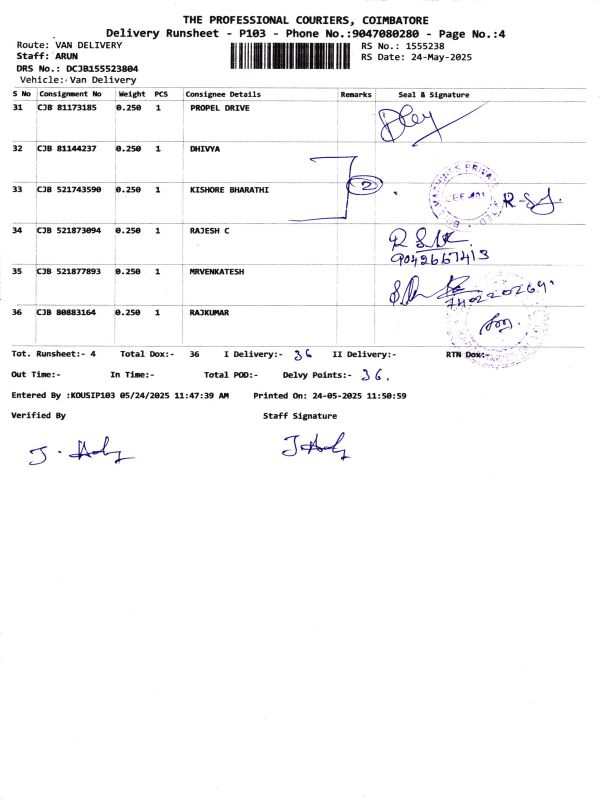 THE PROFESSIONAL COURIERS, COIMBATORE
Delivery Runsheet - P103 - Phone No.:9047080280 - Page No.:4
Route: VAN DELIVERY
RS No.: 1555238
Staff: ARUN
RS Date: 24-May-2025
DRS No.: DCJB155523804
Vehicle: Van Delivery
S No Consignment No Weight PCS Consignee Details Remarks Seal & Signature
31 CJB 81173185 0.250 1 PROPEL DRIVE
32 CJB 81144237 0.250 1 DHIVYA
2
33 CJB 521743590 0.250 1 KISHORE BHARATHI
34 CJB 521873094 0.250 1 RAJESH C
9042667413
35 CJB 521877893 0.250 1 MRVENKATESH
36 CJB 80883164 0.250 1 RAJKUMAR
Tot. Runsheet:- 4 Total Dox:- 36 I Delivery:- 36 II Delivery:- RTN Dox:-
Out Time:- In Time:- Total POD:- Delvy Points:- 36.
Entered By :KOUSIP103 05/24/2025 11:47:39 AM Printed On: 24-05-2025 11:50:59
Verified By Staff Signature